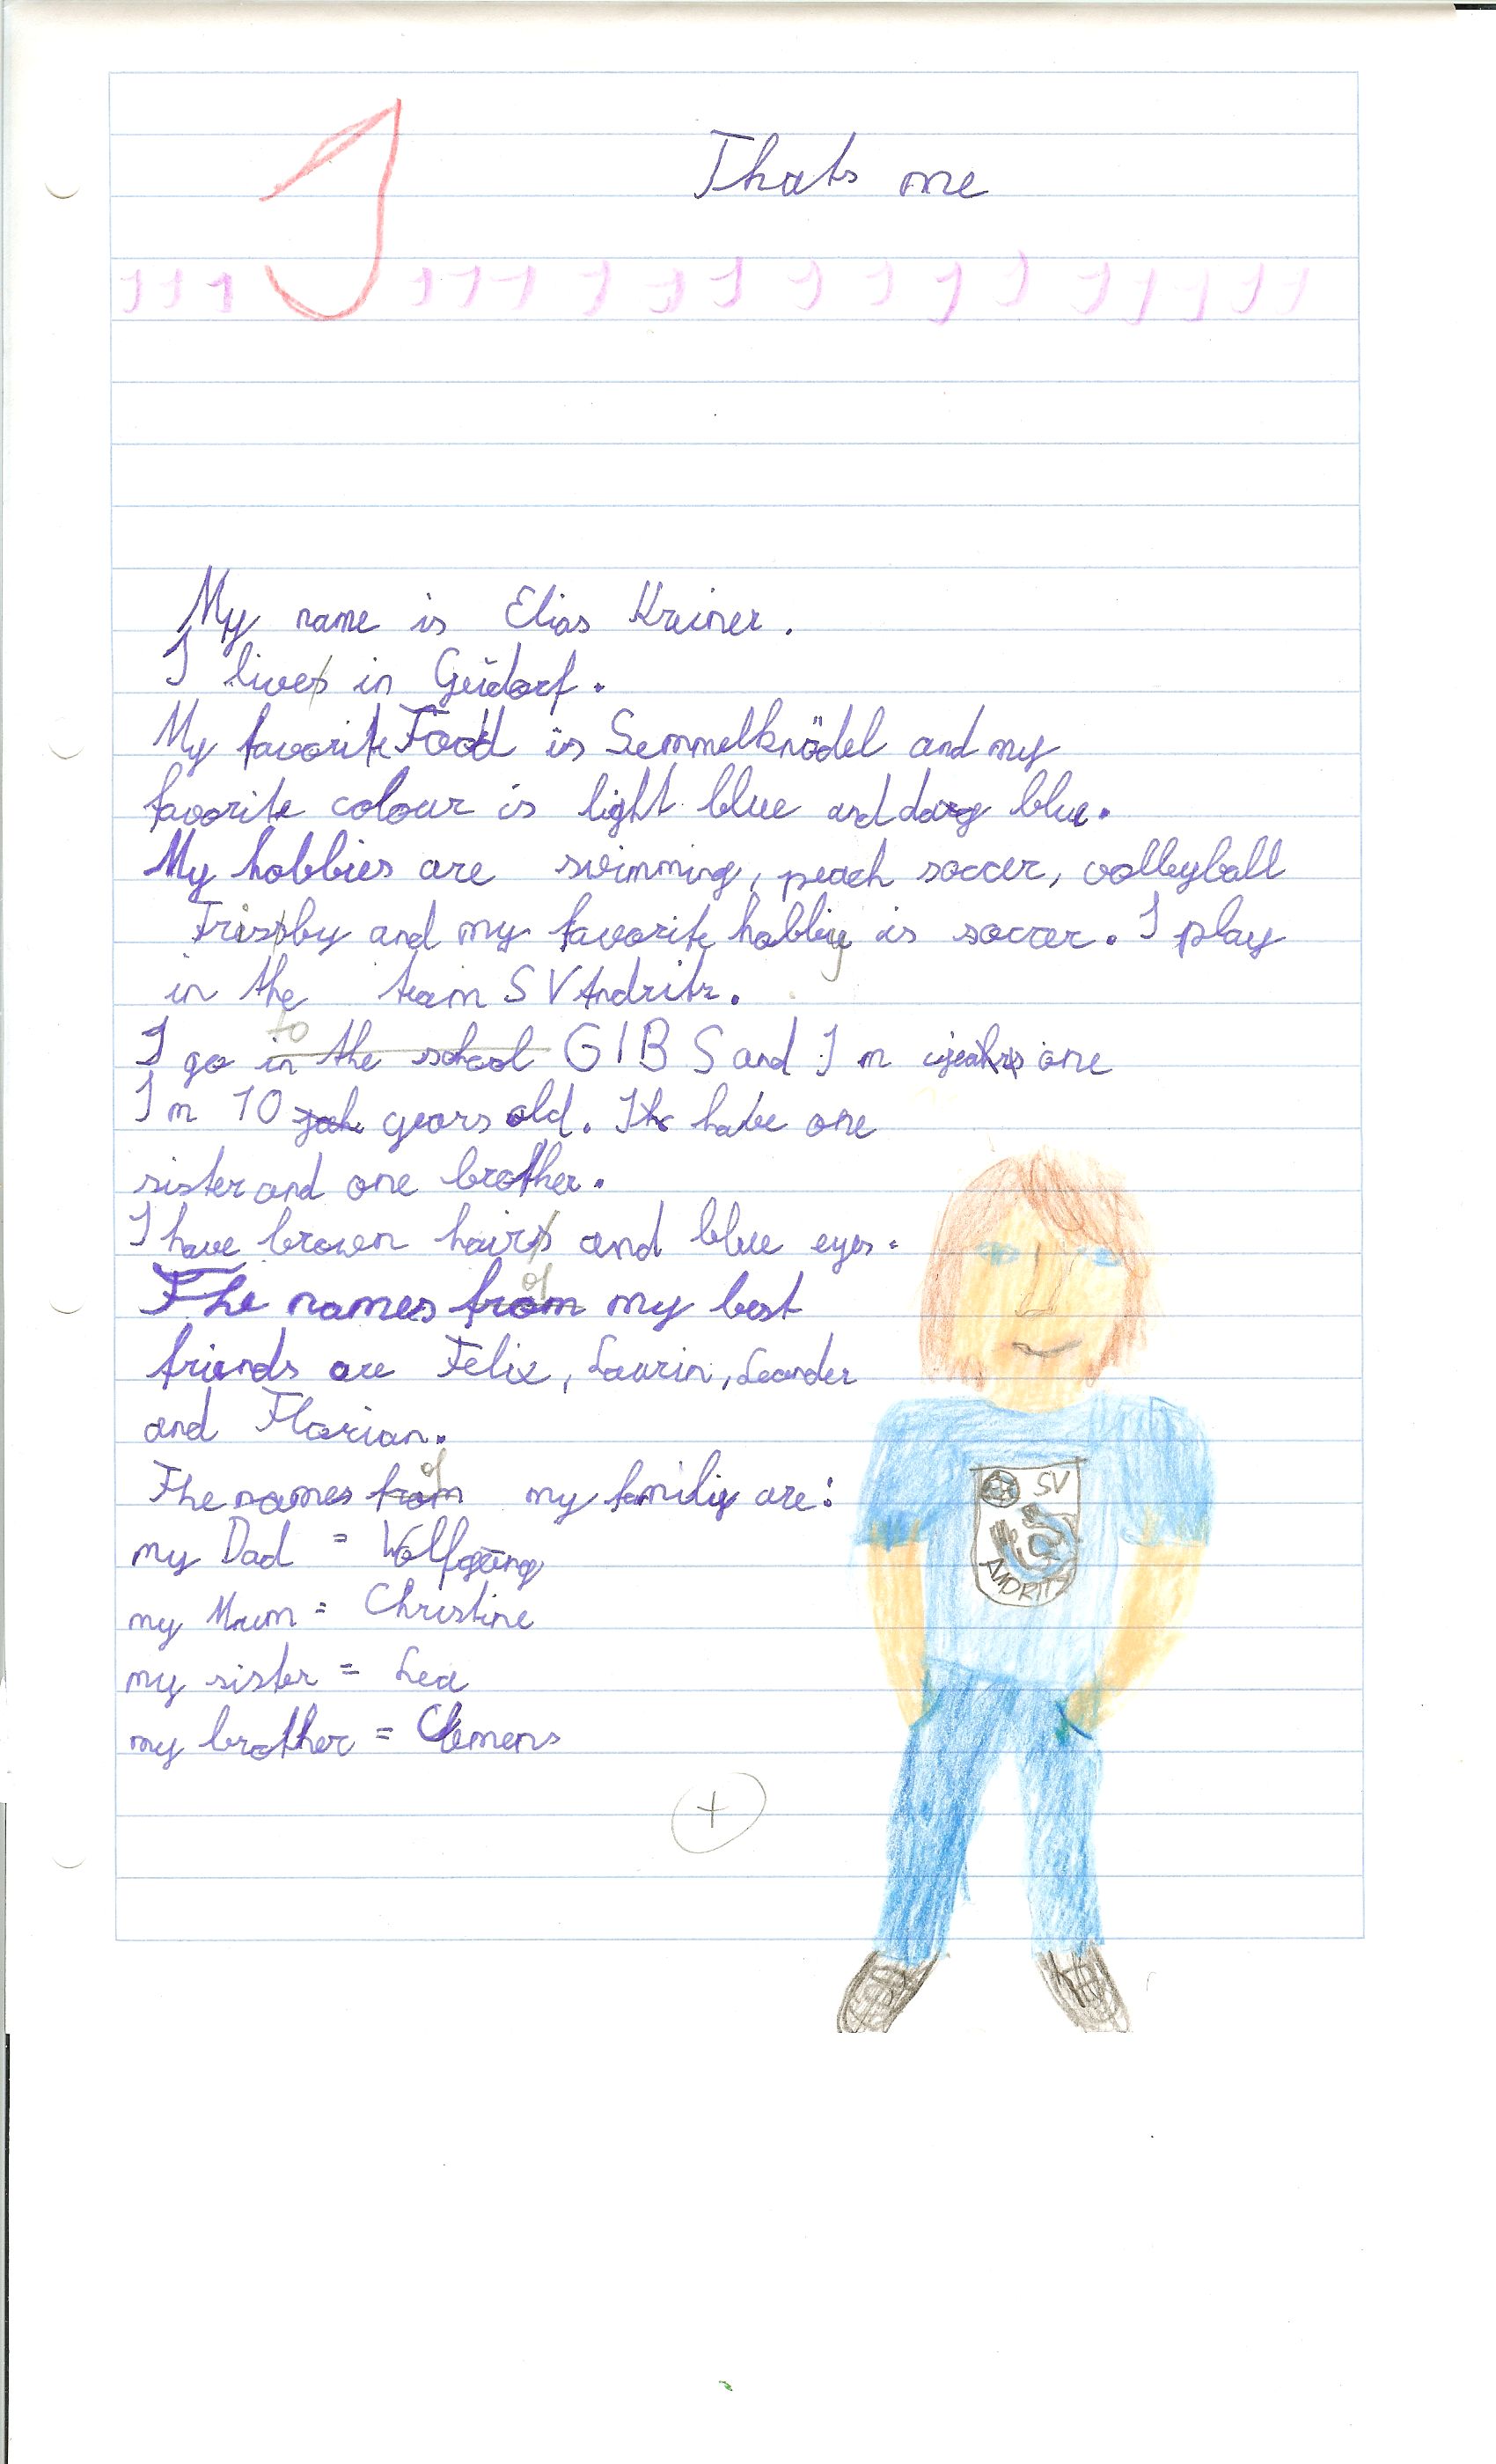 Thats me
1 1 1 1 1 1 1 1 1 1 1 1 1 1 1 1 1 1 1
My name is Elias Krainer.
I live in Geidorf.
My favorite Food is Semmelknödel and my
favorite colour is light blue and darg blue.
My hobbies are swimming, peach soccer, volleyball
Frisby and my favorite hobby is soccer. I play
in the team SV Andritz.
I go to GIBS and I m one
I m 10 years old. I have one
sister and one brother.
I have brown hair and blue eyes.
The names of my best
friends are Felix, Laurin, Leander
and Florian.
The names of my family are:
my Dad = Wolfgang
my Mum = Christine
my sister = Lea
my brother = Clemens
+
SV
ANDRITZ